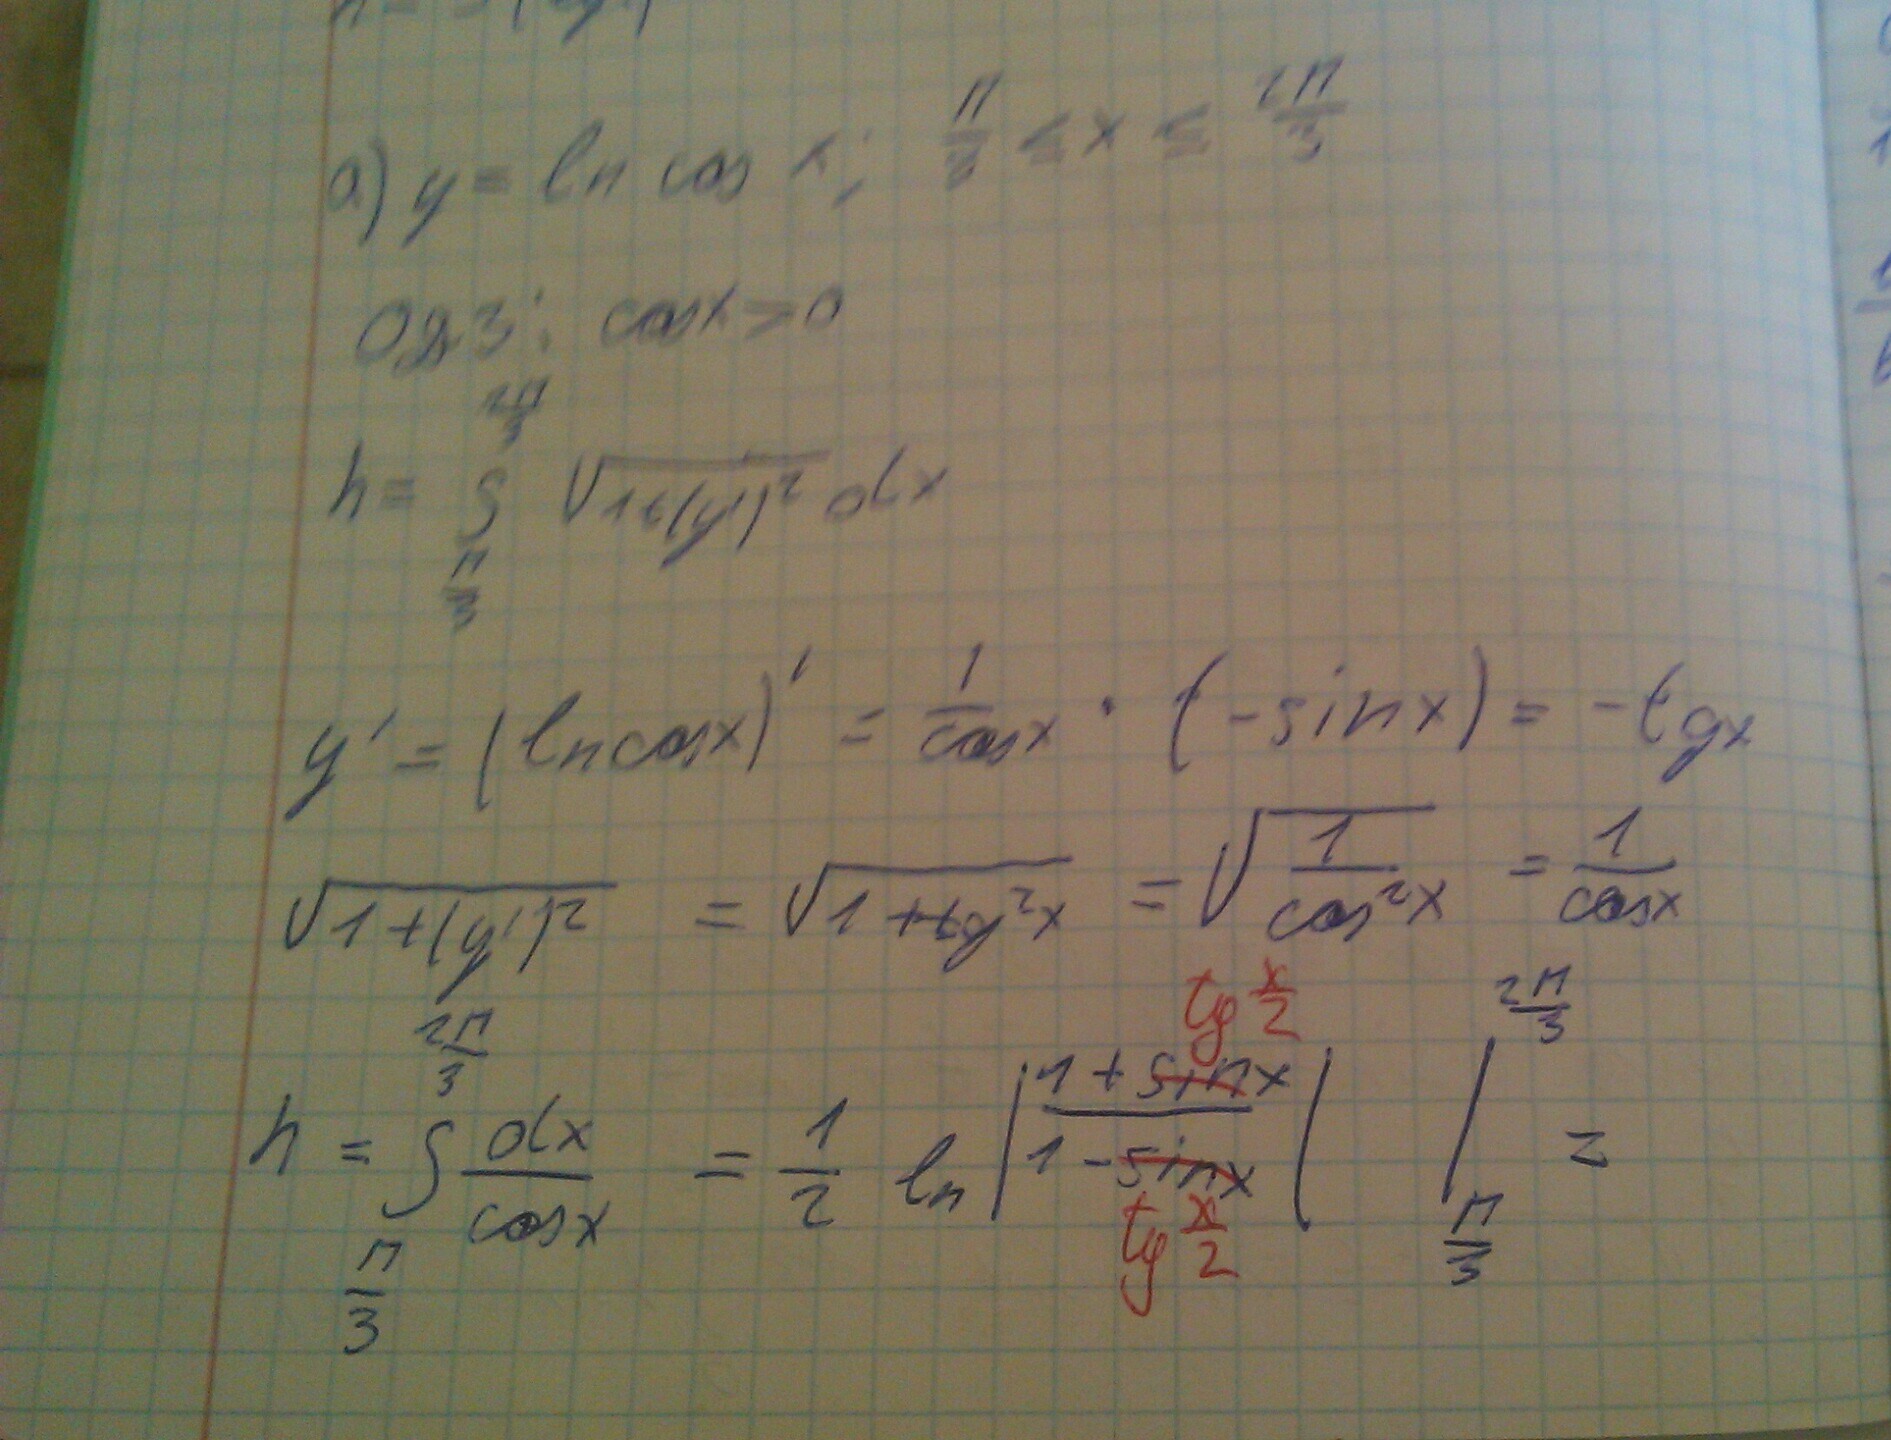 a) y = ln cos x; π/3 ≤ x ≤ 2π/3
ОДЗ: cosx > 0
h = ∫_{π/3}^{2π/3} √(1+(y')²) dx
y' = (ln cosx)' = 1/cosx · (-sinx) = -tgx
√(1+(y')²) = √(1+tg²x) = √(1/cos²x) = 1/cosx
tg x/2
h = ∫_{π/3}^{2π/3} dx/cosx = 1/2 ln |(1+sinx)/(1-sinx)| |_{π/3}^{2π/3} =
tg x/2